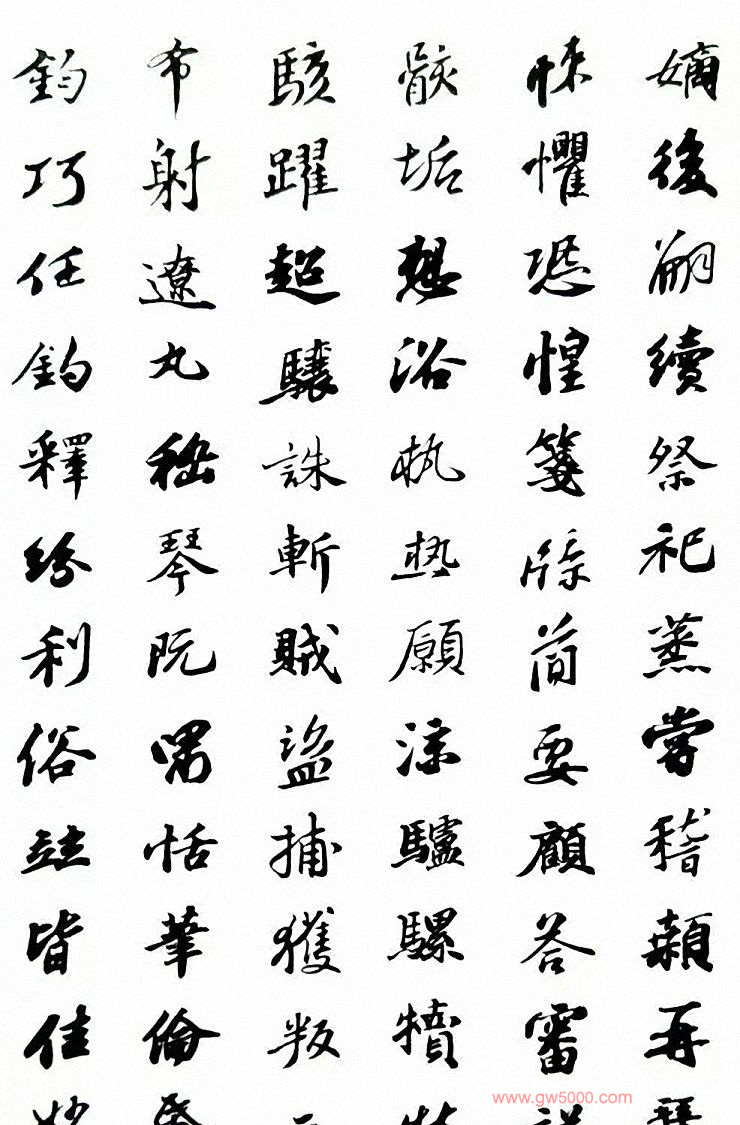 嫡後嗣續祭祀蒸嘗稽顙再
悚懼恐惶箋牒簡要顧答審
骸垢想浴執熱願涼驢騾犢
駭躍超驤誅斬賊盜捕獲叛
布射遼丸嵇琴阮嘯恬筆倫
鈞巧任釣釋紛利俗竝皆佳
www.gw5000.com